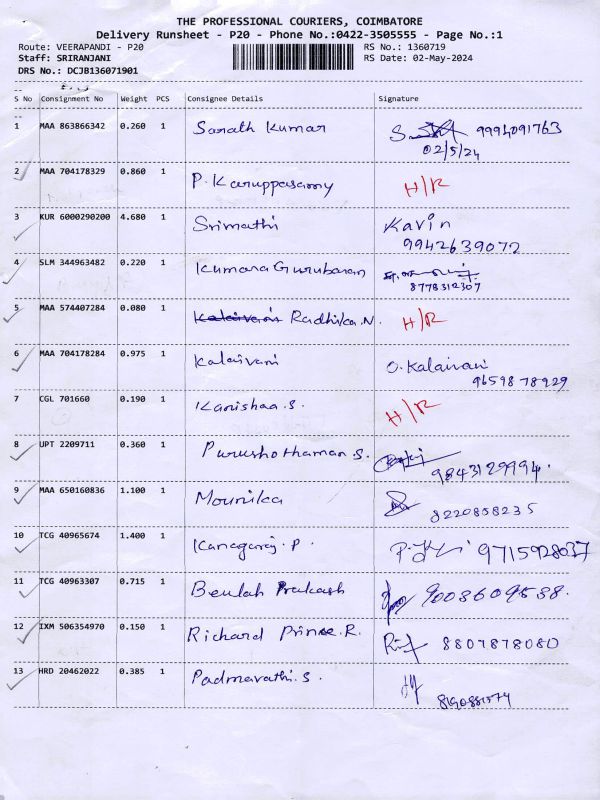 THE PROFESSIONAL COURIERS, COIMBATORE
Delivery Runsheet - P20 - Phone No.:0422-3505555 - Page No.:1
Route: VEERAPANDI - P20 RS No.: 1360719
Staff: SRIRANJANI RS Date: 02-May-2024
DRS No.: DCJB136071901
S No Consignment No Weight PCS Consignee Details Signature
1 MAA 863866342 0.260 1 Sarath Kumar 9994091763
02/5/24
2 MAA 704178329 0.860 1 P. Karuppasamy H/R
3 KUR 6000290200 4.680 1 Srimathi Kavin
9942639072
4 SLM 344963482 0.220 1 Kumara Gurubaran
8778312307
5 MAA 574407284 0.080 1 Kalaivani Radhika.N. H/R
6 MAA 704178284 0.975 1 Kalaivani O. Kalaivani
9659878929
7 CGL 701660 0.190 1 Kanishaa.S. H/R
8 UPT 2209711 0.360 1 Purushothaman.S.
9843129994.
9 MAA 650160836 1.100 1 Mounika
8220858235
10 TCG 40965674 1.400 1 Kanagaraj.P. 9715928037
11 TCG 40963307 0.715 1 Beulah Prakash 9003609588.
12 IXM 506354970 0.150 1 Richard Prince.R. 8807878080
13 HRD 20462022 0.385 1 Padmavathi.S.
8190881574